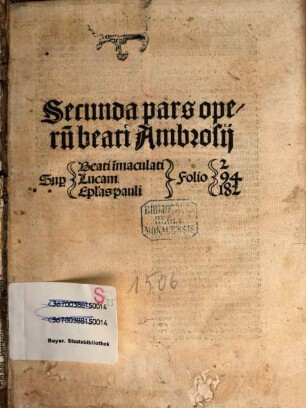 Secunda pars ope-
rū beati Ambrosij
Beati īmaculati 2
Sup Lucam Folio 94
Eplas pauli 182
BIBLIOTHECA
REGIA
MONACENSIS
1506
S
<36700388150014
<36700388150014
Bayer. Staatsbibliothek